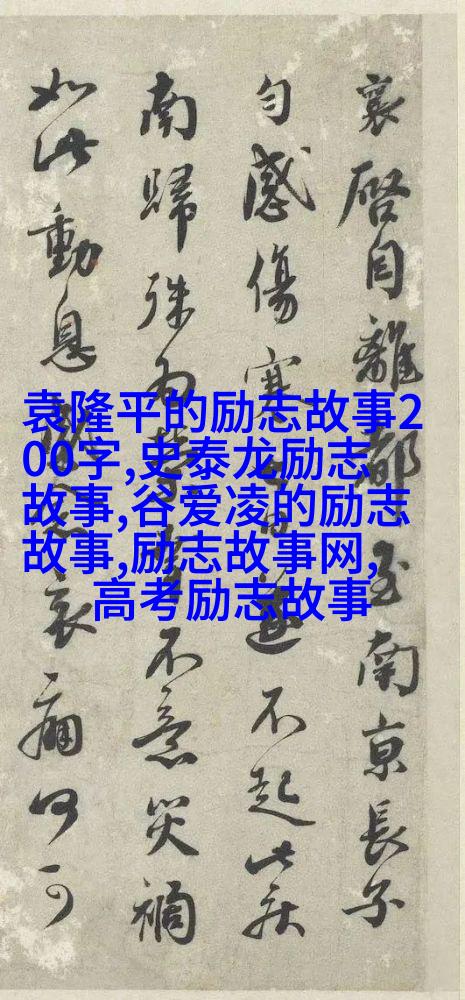 袁隆平的励志故事2
00字,史泰龙励志
故事,谷爱凌的励志
故事,励志故事网,
高考励志故事
襄啓自離都至南京長子
匀感傷寒日遂不起此疾
南歸殊為幸不意災禍
如此動息哀痛何可